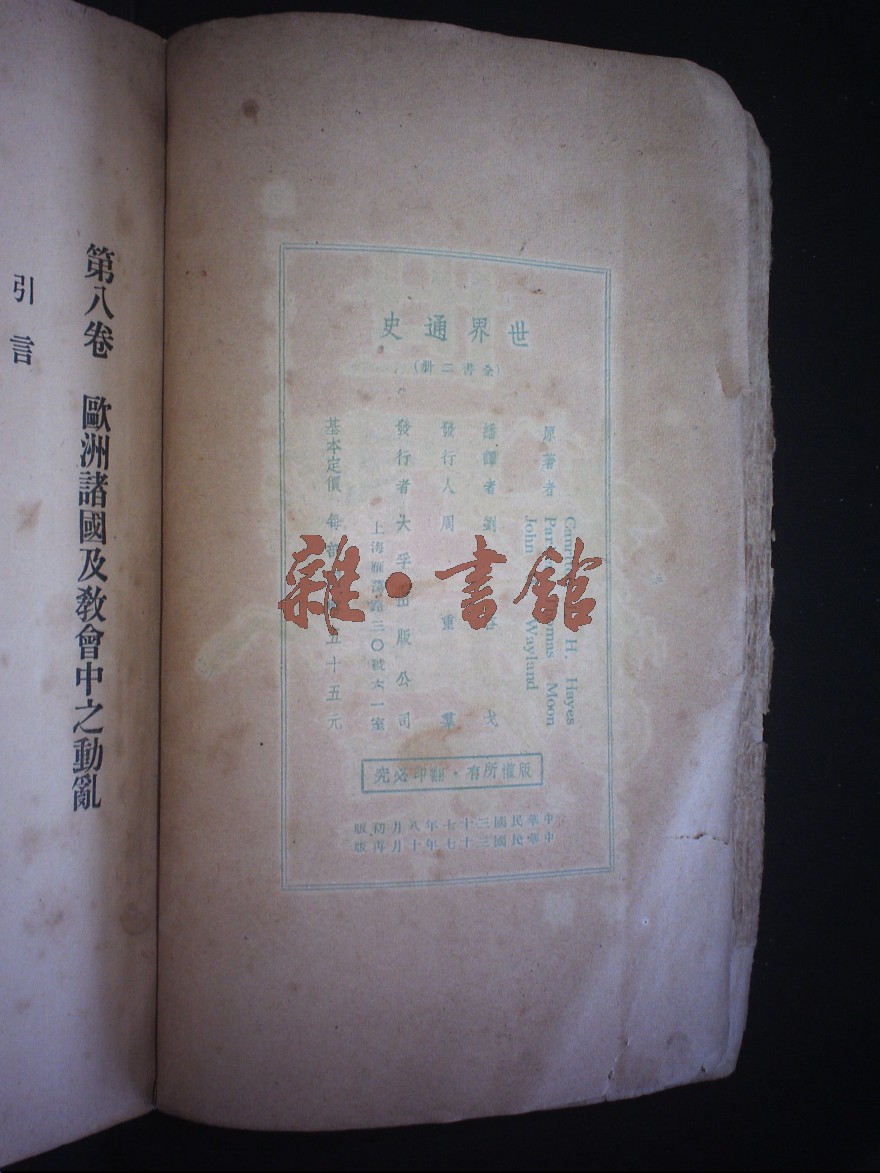 世界通史
(全書二冊)
原著者
H. Hayes
Moon
John Wayland
繙譯者 劉 戈
發行人 周 重 羣
發行者 大孚出版公司
上海 路三〇號 一室
基本定價 每部 五十五元
版權所有·翻印必究
中華民國三十七年八月初版
中華民國三十七年十月再版
雜·書館
第八卷 歐洲諸國及教會中之動亂
引言